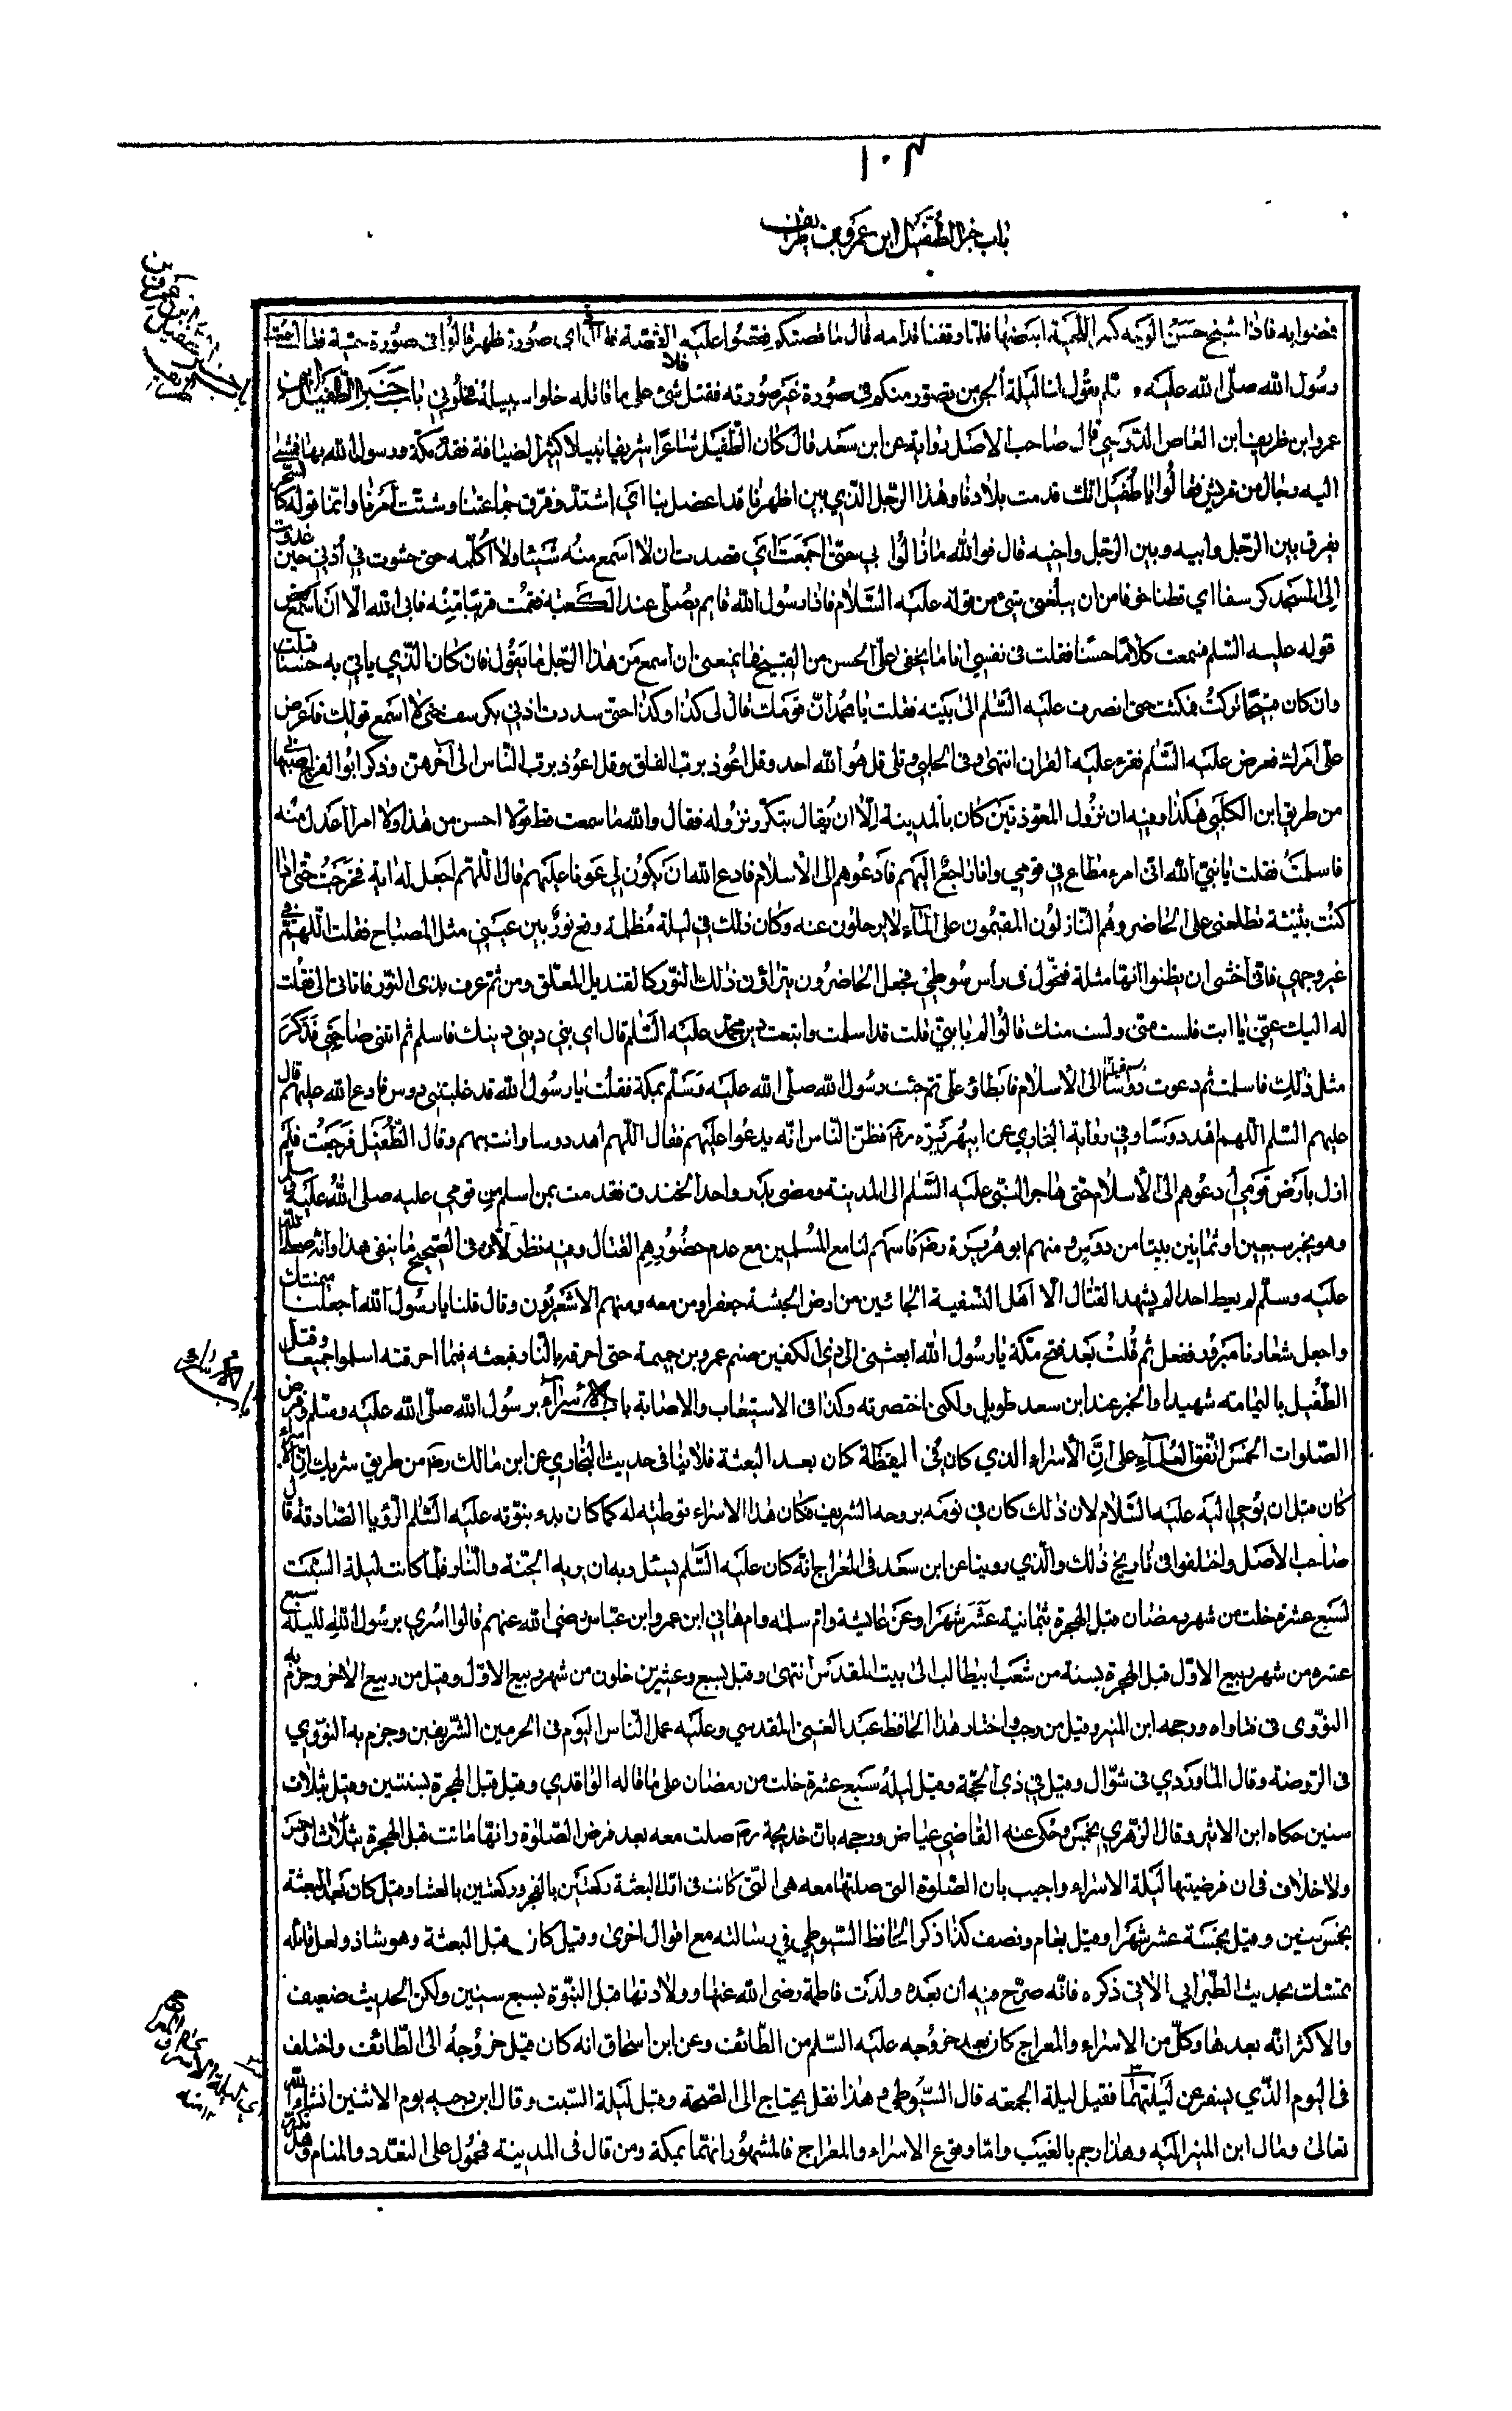 ١٠٣
باب خبر الطفيل ابن عمرو بن طريف
فمضوا به فاذا شيخ حسن الوجه كبير اللحية ابيضها فلما وقفنا قدامه قال ما قصتكم فقصوا عليه القصة قال في اي صورة ظهر قالوا في صورة حية فقال سمعت
رسول الله صلى الله عليه وسلم يقول لنا ليلة الجن من تصور منكم في صورة غير صورته فقتل فلا شئ على قاتله خلوا سبيله فخلوني باب خبر الطفيل ابن
عمرو ابن طريف ابن العاص الدوسي قال صاحب الاصل رواية عن ابن سعد قال كان الطفيل شاعرا شريفا نبيلا كثير الضيافة فقدم مكة ورسول الله بها فمشى
اليه رجال من قريش فقالوا يا طفيل انك قدمت بلادنا وهذا الرجل الذي بين اظهرنا قد اعضل بنا اي اشتد وفرق جماعتنا وشتت امرنا وانما قوله كالسحر
يفرق بين الرجل وابيه وبين الرجل واخيه قال فوالله مازالوا بي حتى اجمعت اي قصدت ان لا اسمع منه شيئا ولا اكلمه حتى حشوت في اذني حين غدوت
الى المسجد كرسفا اي قطنا خوفا من ان يبلغني شئ من قوله عليه السلام فاذا رسول الله قايم يصلي عند الكعبة فقمت قريبا منه فابى الله الا ان اسمع بعض
قوله عليه السلم فسمعت كلاما حسنا فقلت في نفسي انا ما يخفى على الحسن من القبيح فما يمنعني ان اسمع من هذا الرجل ما يقول فان كان الذي ياتي به حسنا قبلت
وان كان قبيحا تركت فمكثت حتى انصرف عليه السلم الى بيته فقلت يا محمد ان قومك قال لي كذا وكذا حتى سددت اذني بكرسف حتى لا اسمع قولك فاعرض
على امرك فعرض عليه السلم فقرء عليه القران انتهى وفي الحلبي وتلى قل هو الله احد وقل اعوذ برب الفلق وقل اعوذ برب الناس الى اخرهن وذكر ابو الفرج
من طريق ابن الكلبي هكذا وفيه ان نزول المعوذتين كان بالمدينة الا ان يقال بتكرر نزوله فقال والله ما سمعت قط قولا احسن من هذا ولا امرا اعدل منه
فاسلمت فقلت يا نبي الله اني امرء مطاع في قومي وانا راجع اليهم فادعوهم الى الاسلام فادع الله ان يكون لي عونا عليهم قال اللهم اجعل له اية فخرجت حتى اذا
كنت بثنية تطلعني على الحاضر وهم النازلون المقيمون على الماء لا يرحلون عنه وكان ذلك في ليلة مظلمة وقع نور بين عيني مثل المصباح فقلت اللهم في
غير وجهي فاني اخشى ان يظنوا انها مثلة فتحول في رأس سوطي فجعل الحاضرون يتراؤن ذلك النور كالقنديل المعلق ومن ثم عرف بذى النور فاتاني ابي فقلت
له اليك عني يا ابت فلست مني ولست منك قالوا لم يا بني قلت قد اسلمت واتبعت دين محمد عليه السلم قال اي بني ديني دينك فاسلم ثم اتتني صاحبتي فذكرت
مثل ذلك فاسلمت ثم دعوت دوسا الى الاسلام فابطاؤ على ثم جئت رسول الله صلى الله عليه وسلم بمكة فقلت يا رسول الله قد غلبتني دوس فادع الله عليهم قال
عليهم السلم اللهم اهد دوسا وفي رواية البخاري عن ابي هريره رضه فظن الناس انه يدعوا عليهم فقال اللهم اهد دوسا وانت بهم وقال الطفيل فرجعت فلم
ازل بارض قومي ادعوهم الى الاسلام حتى هاجر النبي عليه السلم الى المدينة ومضى بدر واحد الخندق فقدمت بمن اسلم من قومي عليه صلى الله عليه وسلم
وهو بخيبر سبعين او ثمانين بيتا من دوس ومنهم ابو هريرة رضه فاسهم لنا مع المسلمين مع عدم حضورهم القتال وفيه نظر لان في الصحيح ما ينفي هذا وانه صلى الله
عليه وسلم لم يعط احدا لم يشهد القتال الا اهل السفينة الجائين من ارض الحبشة جعفر ومن معه ومنهم الاشعريون وقال قلنا يا رسول الله اجعلنا ميمنتك
واجعل شعارنا مبرور ففعل ثم قلت بعد فتح مكة يا رسول الله ابعثني الى ذى الكفين صنم عمرو بن حممة حتى احرقه بالنار فبعثه فلما احرقته اسلموا جميعا وقتل
الطفيل باليمامه شهيدا والخبر عند ابن سعد طويل ولكني اختصرته وكذا في الاستيعاب والاصابة باب الاسراء برسول الله صلى الله عليه وسلم وفرض
الصلوات الخمس اتفق العلماء على ان الاسراء الذي كان في اليقظة كان بعد البعثة فلا ينافي حديث البخاري عن ابن مالك رضه من طريق شريك ان الاسراء
كان قبل ان يوحى اليه عليه السلام لان ذلك كان في نومه بروحه الشريف فكان هذا الاسراء توطئه له كما كان بدء نبوته عليه السلم الرؤيا الصادقة قال
صاحب الاصل واختلفوا في تاريخ ذلك والذي روينا عن ابن سعد في المعراج انه كان عليه السلم يسئل ربه ان يريه الجنة والنار فلما كانت ليلة السبت
لسبع عشرة خلت من شهر رمضان قبل الهجرة بثمانية عشر شهرا وعن عائشة وام سلمه وام هاني ابن عمرو ابن عباس رضي الله عنهم قالوا اسري برسول الله ليلة سبع
عشره من شهر ربيع الاول قبل الهجرة بسنة من شعب ابيطالب الى بيت المقدس انتهى وقيل بسبع وعشرين خلون من شهر ربيع الاول وقيل من ربيع الاخر وجزم به
النووى في فتاواه ورجحه ابن المنير وقيل من رجب واختار هذا الحافظ عبد الغني المقدسي وعليه عمل الناس اليوم في الحرمين الشريفين وجزم به النووي
في الروضة وقال الماوردي في شوال وقيل في ذى الحجة وقيل ليلة سبع عشرة خلت من رمضان على ما قاله الواقدي وقيل قبل الهجرة بسنتين وقيل بثلاث
سنين حكاه ابن الاثير وقال الزهري بخمس وحكى عنه القاضي عياض ورجحه بان خديجة رضه صلت معه بعد فرض الصلوة وانها ماتت قبل الهجرة بثلاث او خمس
ولا خلاف في ان فرضيتها ليلة الاسراء واجيب بان الصلوة التي صلتها معه هي التي كانت في اول البعثة ركعتين بالفجر وركعتين بالعشا وقيل كان بعد البعثة
بخمس سنين وقيل بخمسة عشر شهرا وقيل بعام ونصف كذا ذكر الحافظ السيوطي في رسالته مع اقوال اخرى وقيل كان قبل البعثة وهو شاذ ولعل قائله
تمسك بحديث الطبراني الاتي ذكره فانه صرح فيه ان بعده ولدت فاطمة رضى الله عنها وولادتها قبل النبوة بسبع سنين ولكن الحديث ضعيف
والاكثر انه بعدها وكل من الاسراء والمعراج كان بعد خروجه عليه السلم من الطائف وعن ابن اسحاق انه كان قبل خروجه الى الطائف واختلف
في اليوم الذي يسفر عن ليلتهما فقيل ليلة الجمعة قال السيوطي وهذا نقل يحتاج الى الصحة وقيل ليلة السبت وقال ابن دحيه يوم الاثنين انشاء الله
تعالى ومال ابن المنير اليه وهذا رجم بالغيب واما وقوع الاسراء والمعراج فالمشهور انهما بمكة ومن قال في المدينة فمحمول على التعدد والمنام وهل